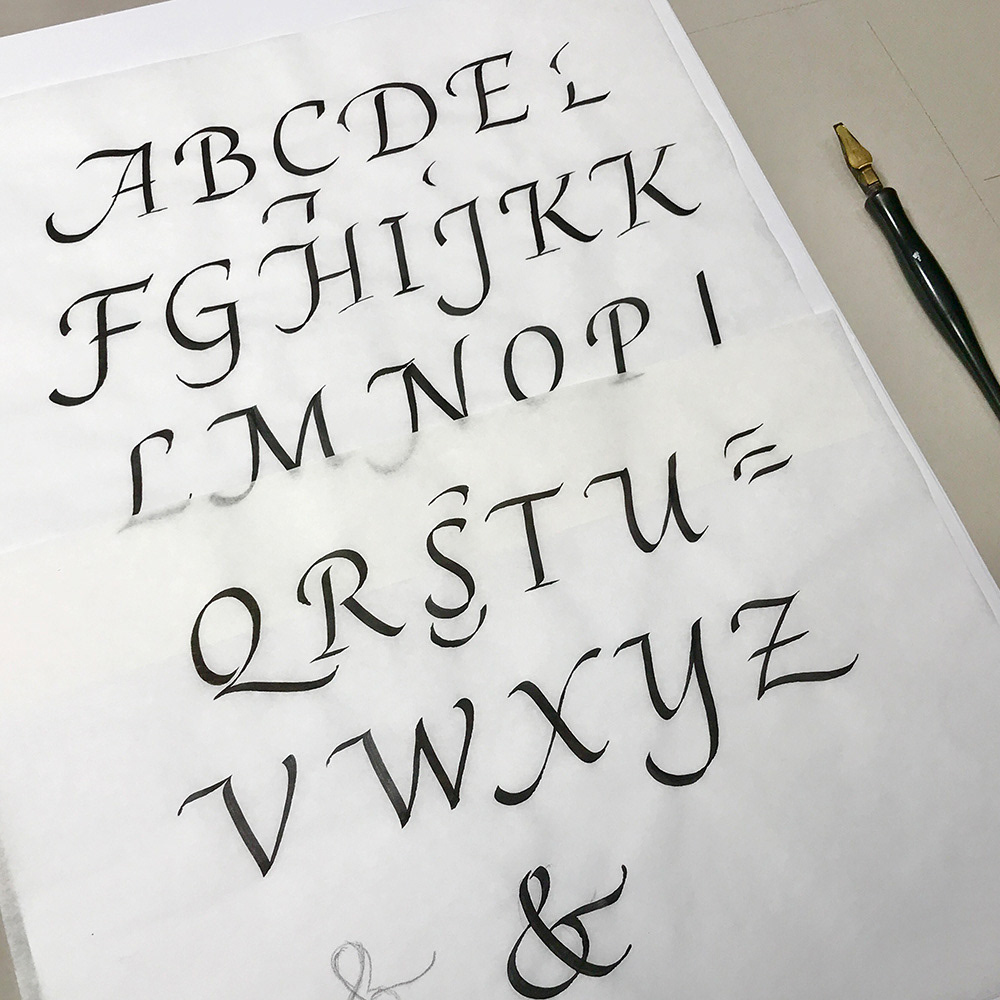 A B C D E
F G H I J K K
L M N O P
Q R S T U
V W X Y Z
&
&